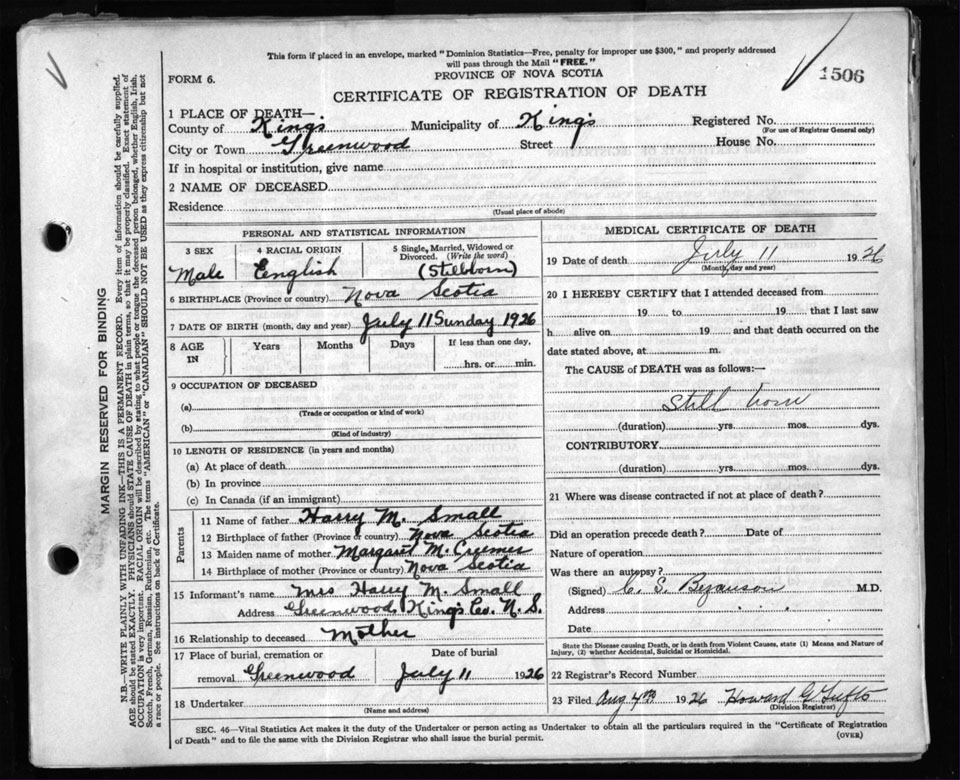 This form if placed in an envelope, marked "Dominion Statistics—Free, penalty for improper use $300," and properly addressed
will pass through the Mail "FREE."
1506
FORM 6.
PROVINCE OF NOVA SCOTIA
CERTIFICATE OF REGISTRATION OF DEATH
1 PLACE OF DEATH—
County of King's Municipality of King's Registered No.
(For use of Registrar General only)
City or Town Greenwood Street House No.
If in hospital or institution, give name
2 NAME OF DECEASED
Residence
(Usual place of abode)
PERSONAL AND STATISTICAL INFORMATION
3 SEX 4 RACIAL ORIGIN 5 Single, Married, Widowed or
Divorced. (Write the word)
Male English (Stillborn)
6 BIRTHPLACE (Province or country) Nova Scotia
7 DATE OF BIRTH (month, day and year) July 11 Sunday 1926
8 AGE IN Years Months Days If less than one day,
hrs. or min.
9 OCCUPATION OF DECEASED
(a)
(Trade or occupation or kind of work)
(b)
(Kind of industry)
10 LENGTH OF RESIDENCE (in years and months)
(a) At place of death
(b) In province
(c) In Canada (if an immigrant)
Parents
11 Name of father Harry M. Small
12 Birthplace of father (Province or country) Nova Scotia
13 Maiden name of mother Margaret M.
14 Birthplace of mother (Province or country) Nova Scotia
15 Informant's name Mrs Harry M. Small
Address Greenwood, King's Co. N. S.
16 Relationship to deceased Mother
17 Place of burial, cremation or Date of burial
removal Greenwood July 11 1926
18 Undertaker
(Name and address)
MEDICAL CERTIFICATE OF DEATH
19 Date of death July 11 1926
(Month, day and year)
20 I HEREBY CERTIFY that I attended deceased from
19 to 19 that I last saw
h alive on 19 and that death occurred on the
date stated above, at m.
The CAUSE of DEATH was as follows:—
Still born
(duration) yrs. mos. dys.
CONTRIBUTORY
(duration) yrs. mos. dys.
21 Where was disease contracted if not at place of death?
Did an operation precede death? Date of
Nature of operation
Was there an autopsy?
(Signed) C. S. M.D.
Address
Date
State the Disease causing Death, or in death from Violent Causes, state (1) Means and Nature of
Injury, (2) whether Accidental, Suicidal or Homicidal.
22 Registrar's Record Number
23 Filed Aug 4th 1926 Howard G Tufts
(Division Registrar)
SEC. 46—Vital Statistics Act makes it the duty of the Undertaker or person acting as Undertaker to obtain all the particulars required in the "Certificate of Registration
of Death" and to file the same with the Division Registrar who shall issue the burial permit.
(OVER)
MARGIN RESERVED FOR BINDING
N.B.—WRITE PLAINLY WITH UNFADING INK—THIS IS A PERMANENT RECORD. Every item of information should be carefully supplied.
AGE should be stated EXACTLY. PHYSICIANS should STATE CAUSE OF DEATH in plain terms, so that it may be properly classified. Exact statement of
OCCUPATION is very important. RACIAL ORIGIN will be described by stating to what people or tongue the deceased person belonged, whether English, Irish,
Scotch, French, German, Russian, Ruthenian, etc. The terms "AMERICAN" or "CANADIAN" SHOULD NOT BE USED as they express citizenship but not
a race or people. See instructions on back of Certificate.